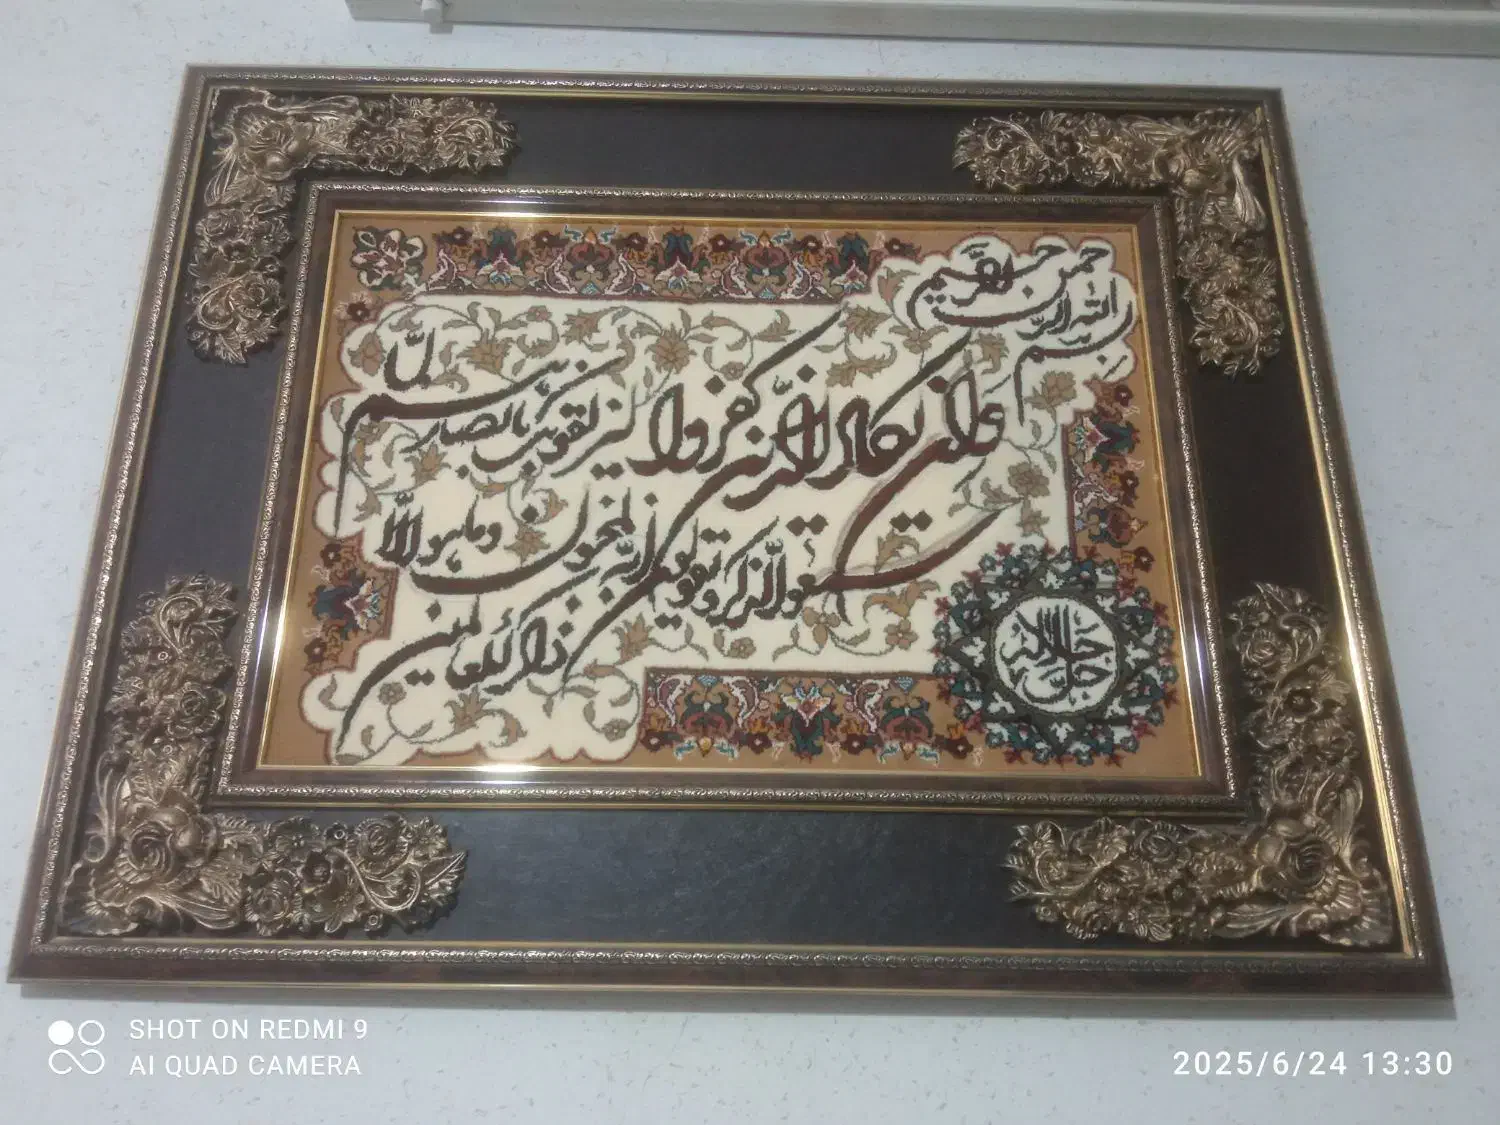 بسم الله الرحمن الرحیم
وان یکاد الذین کفروا لیزلقونک بابصارهم لما
سمعوا الذکر و یقولون انه لمجنون وما هو الا
ذکر للعالمین
جل جلاله
SHOT ON REDMI 9
AI QUAD CAMERA
2025/6/24 13:30